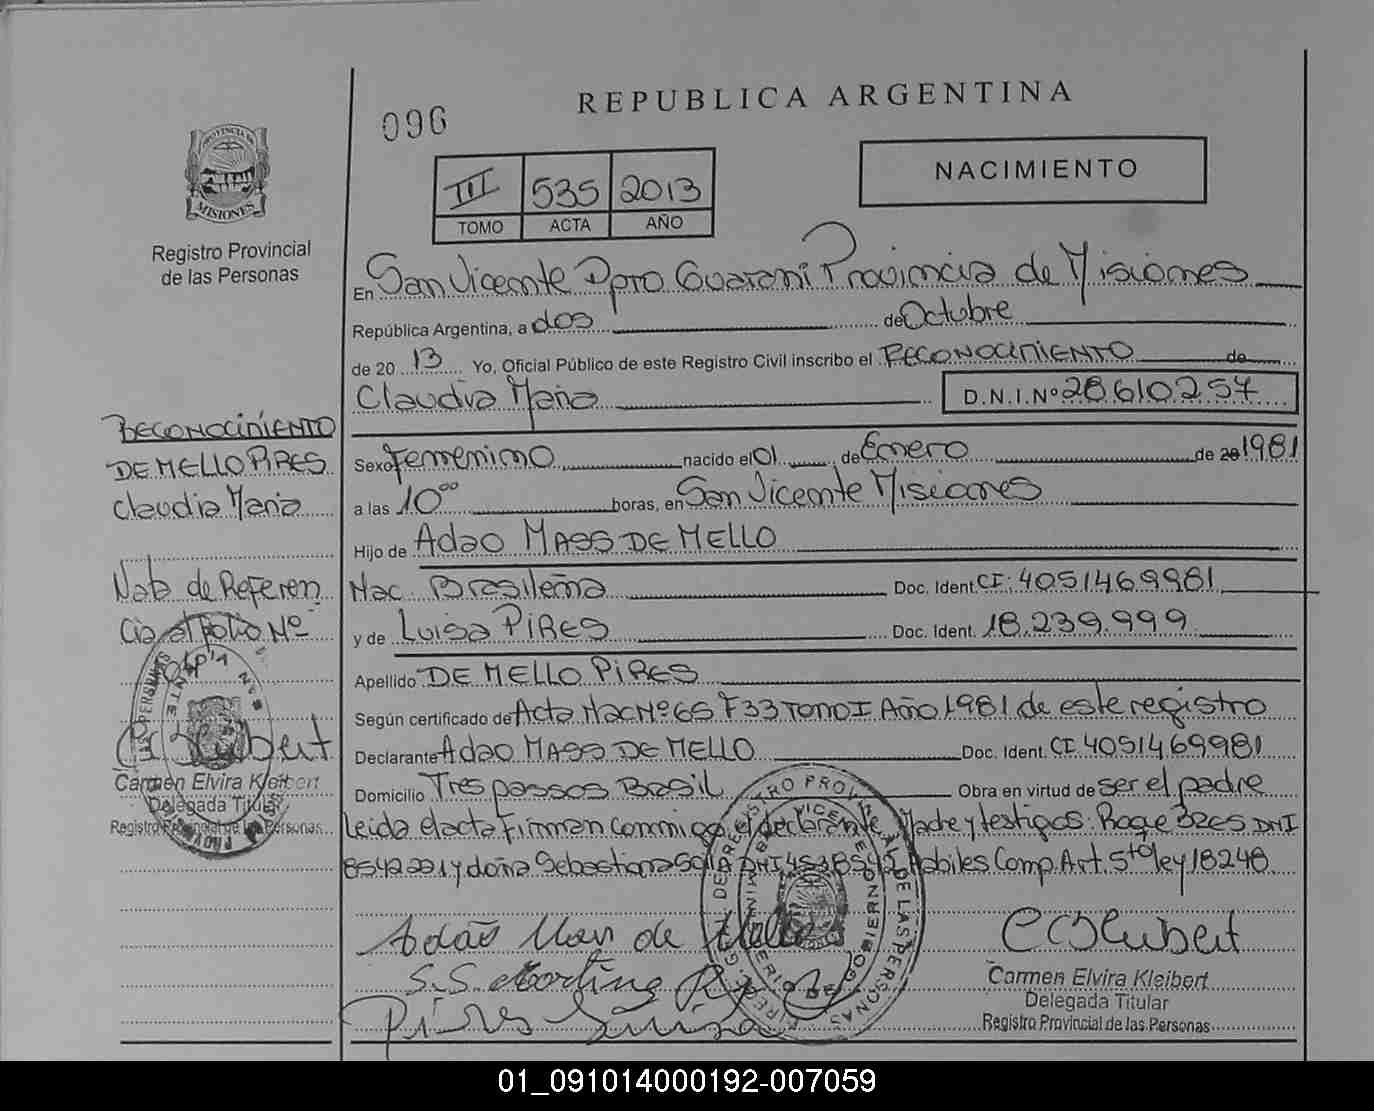 096
REPUBLICA ARGENTINA
NACIMIENTO
III 535 2013
TOMO ACTA AÑO
PROVINCIA DE
MISIONES
Registro Provincial
de las Personas
En San Vicente Dpto Guarani Provincia de Misiones
República Argentina, a dos de Octubre
de 20 13 Yo, Oficial Público de este Registro Civil inscribo el RECONOCIMIENTO de
Claudia Maria D.N.I.Nº 28610257
RECONOCIMIENTO
DE MELLO PIRES
Claudia Maria
Sexo Femenino nacido el 01 de Enero de 20 1981
a las 10 00 horas, en San Vicente Misiones
Hijo de Adao MASS DE MELLO
Nota de Referen
cia al Folio Nº
Nac. Brasileña Doc. Ident. CI: 4051469981
y de Luisa PIRES Doc. Ident. 18.239.999
Apellido DE MELLO PIRES
Según certificado de Acta Nac Nº 65 F 33 TOMO I Año 1981 de este registro
Declarante Adao MASS DE MELLO Doc. Ident. CI 4051469981
Domicilio Tres passos Brasil Obra en virtud de ser el padre
Leida el acta Firman conmigo el declarante, Madre y testigos: Roque DNI
8542221 y doña Sebastiana DNI Habiles Comp. Art. 5to ley 18248
Carmen Elvira Kleibert
Delegada Titular
Registro Provincial de las Personas
Adão de Mello
S.S.
Pires Luisa
Carmen Elvira Kleibert
Delegada Titular
Registro Provincial de las Personas
01_091014000192-007059